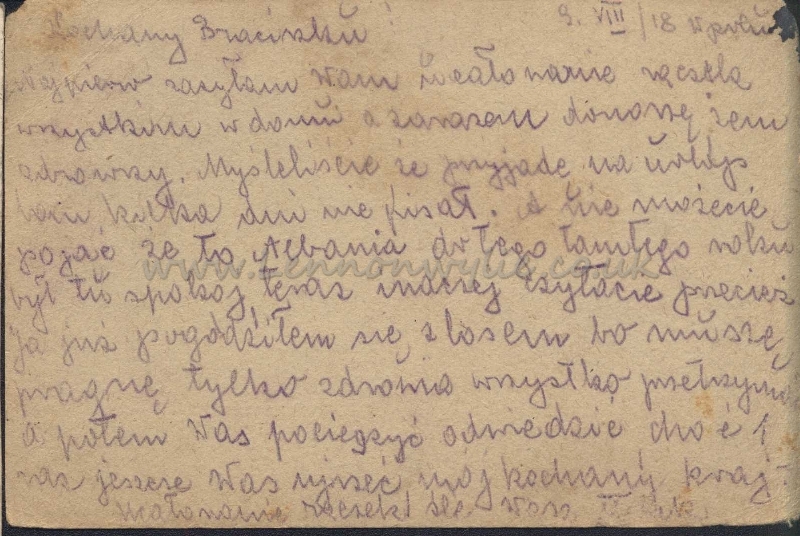 Kochany Braciszku! 9. VIII/18 W polu
Najpierw zasyłam Wam ucałowanie rączek
wszystkim w domu a zarazem donoszę żem
zdrowszy. Myśleliście że przyjadę na urlop
bom kilka dni nie pisał. A nie możecie
pojąć że to Albania do tego tamtego roku
był tu spokój teraz inaczej czytacie przecież
Ja już pogodziłem się z losem bo muszę
pragnę tylko zdrowia wszystko przetrzymać
a potem Was pocieszyć odwiedzić choć 1
raz jeszcze Was ujrzeć mój kochany kraj.
ucałowanie rączek śle Wasz
www.lennonwylie.co.uk